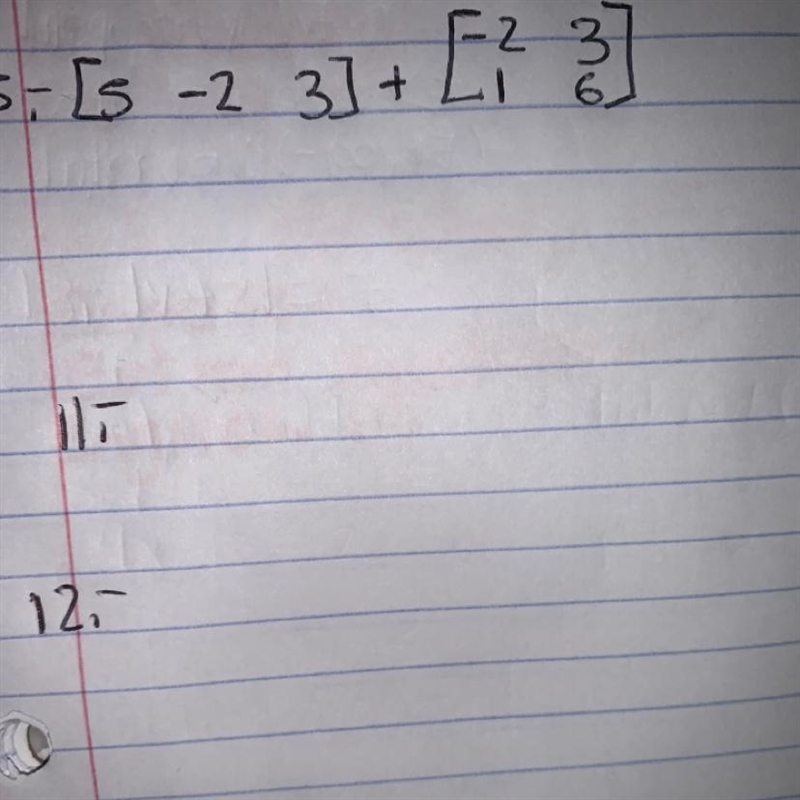 5.- [5 -2 3] + [-2 3
1 6]
11.-
12.-